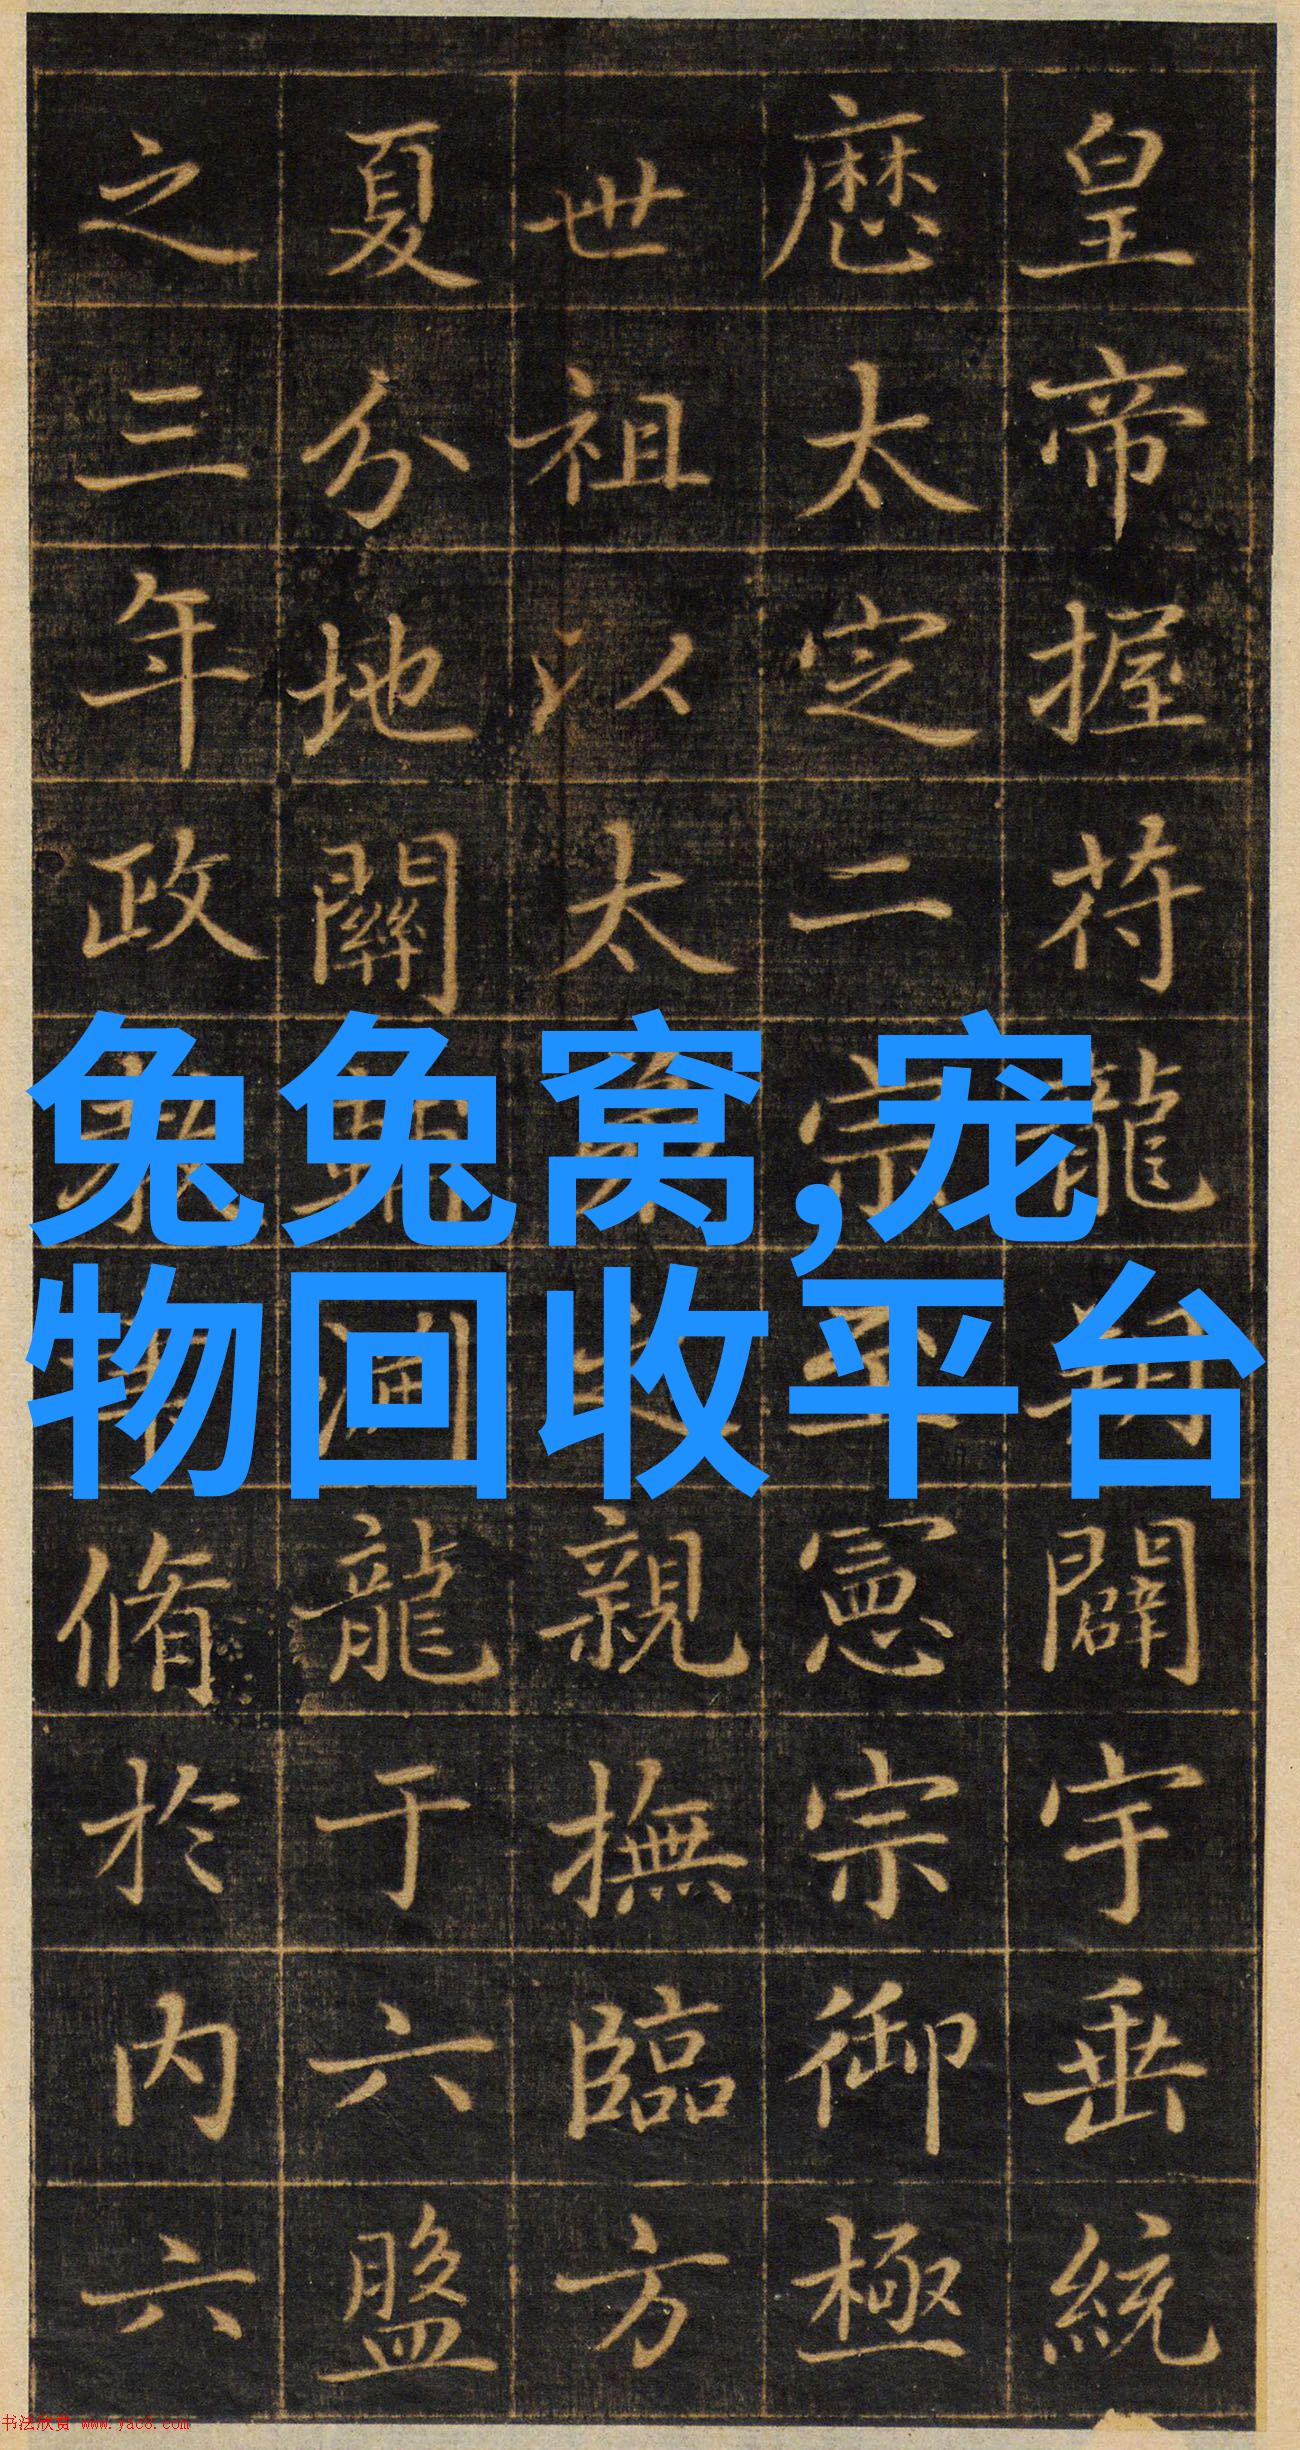 皇帝握符龍闢宇垂統
厯太定二宗至憲宗御極
世祖以太弟之親撫臨方
夏分地關龍于六盤
之三年政脩於内六
兔兔窝,宠
物回收平台
书法欣赏 www.yac8.com